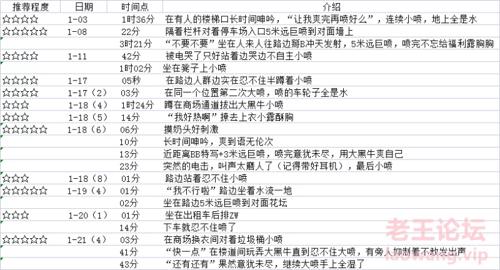 推荐程度 日期 时间点 介绍
☆☆☆☆☆ 1-03 1时36分 在有人的楼梯口长时间呻吟，“让我爽完再喷好么”，连续小喷，地上全是水
☆☆☆☆☆ 1-08 22分 隔着栏杆对着停车场入口5米远巨喷到对面墙上
3时21分 “不要不要”坐在人来人往路边掰B冲天发射，5米远巨喷，喷完不忘给福利露胸胸
☆☆ 1-11 42分 被电哭了只好站着边哭边不自主小喷
1时02分 坐在凳子上小喷
☆☆ 1-17 05秒 在路边人群边实在忍不住半蹲着小喷
☆☆☆ 1-17（2） 03分 在同一个位置第二次大喷，喷的车轮子全是水
☆☆☆ 1-18（4） 1时24分 蹲在商场通道拔出大黑牛小喷
☆☆☆ 1-18（5） 14分 “我好热啊”撩去上衣小露酥胸
☆☆☆☆☆ 1-18（6） 06分 摸奶头好刺激
10分 长时间呻吟，爽到语无伦次
13分 近距离BB特写+3米远巨喷，喷完意犹未尽，用大黑牛爽自己
23分 突然的电击，叫声太磨人了（记得带好耳机），最后小喷
☆☆ 1-18（8） 01分 路边站着忍不住小喷
☆☆☆☆☆ 1-19（4） 01分 “我不行啦”路边坐着水流一地
02分 坐在路边5米远巨喷到对面花坛
☆☆☆ 1-20（1） 01分 坐在出租车后排ZW
14分 下车就忍不住喷了
☆☆☆☆☆ 1-21（4） 03分 在商场换衣间对着垃圾桶小喷
41分 “快一点”在楼道间玩弄大黑牛直到忍不住大喷，有旁人抑制着不敢发出声
43分 “还有还有”果然意犹未尽，继续大喷手上全湿了
老王论坛